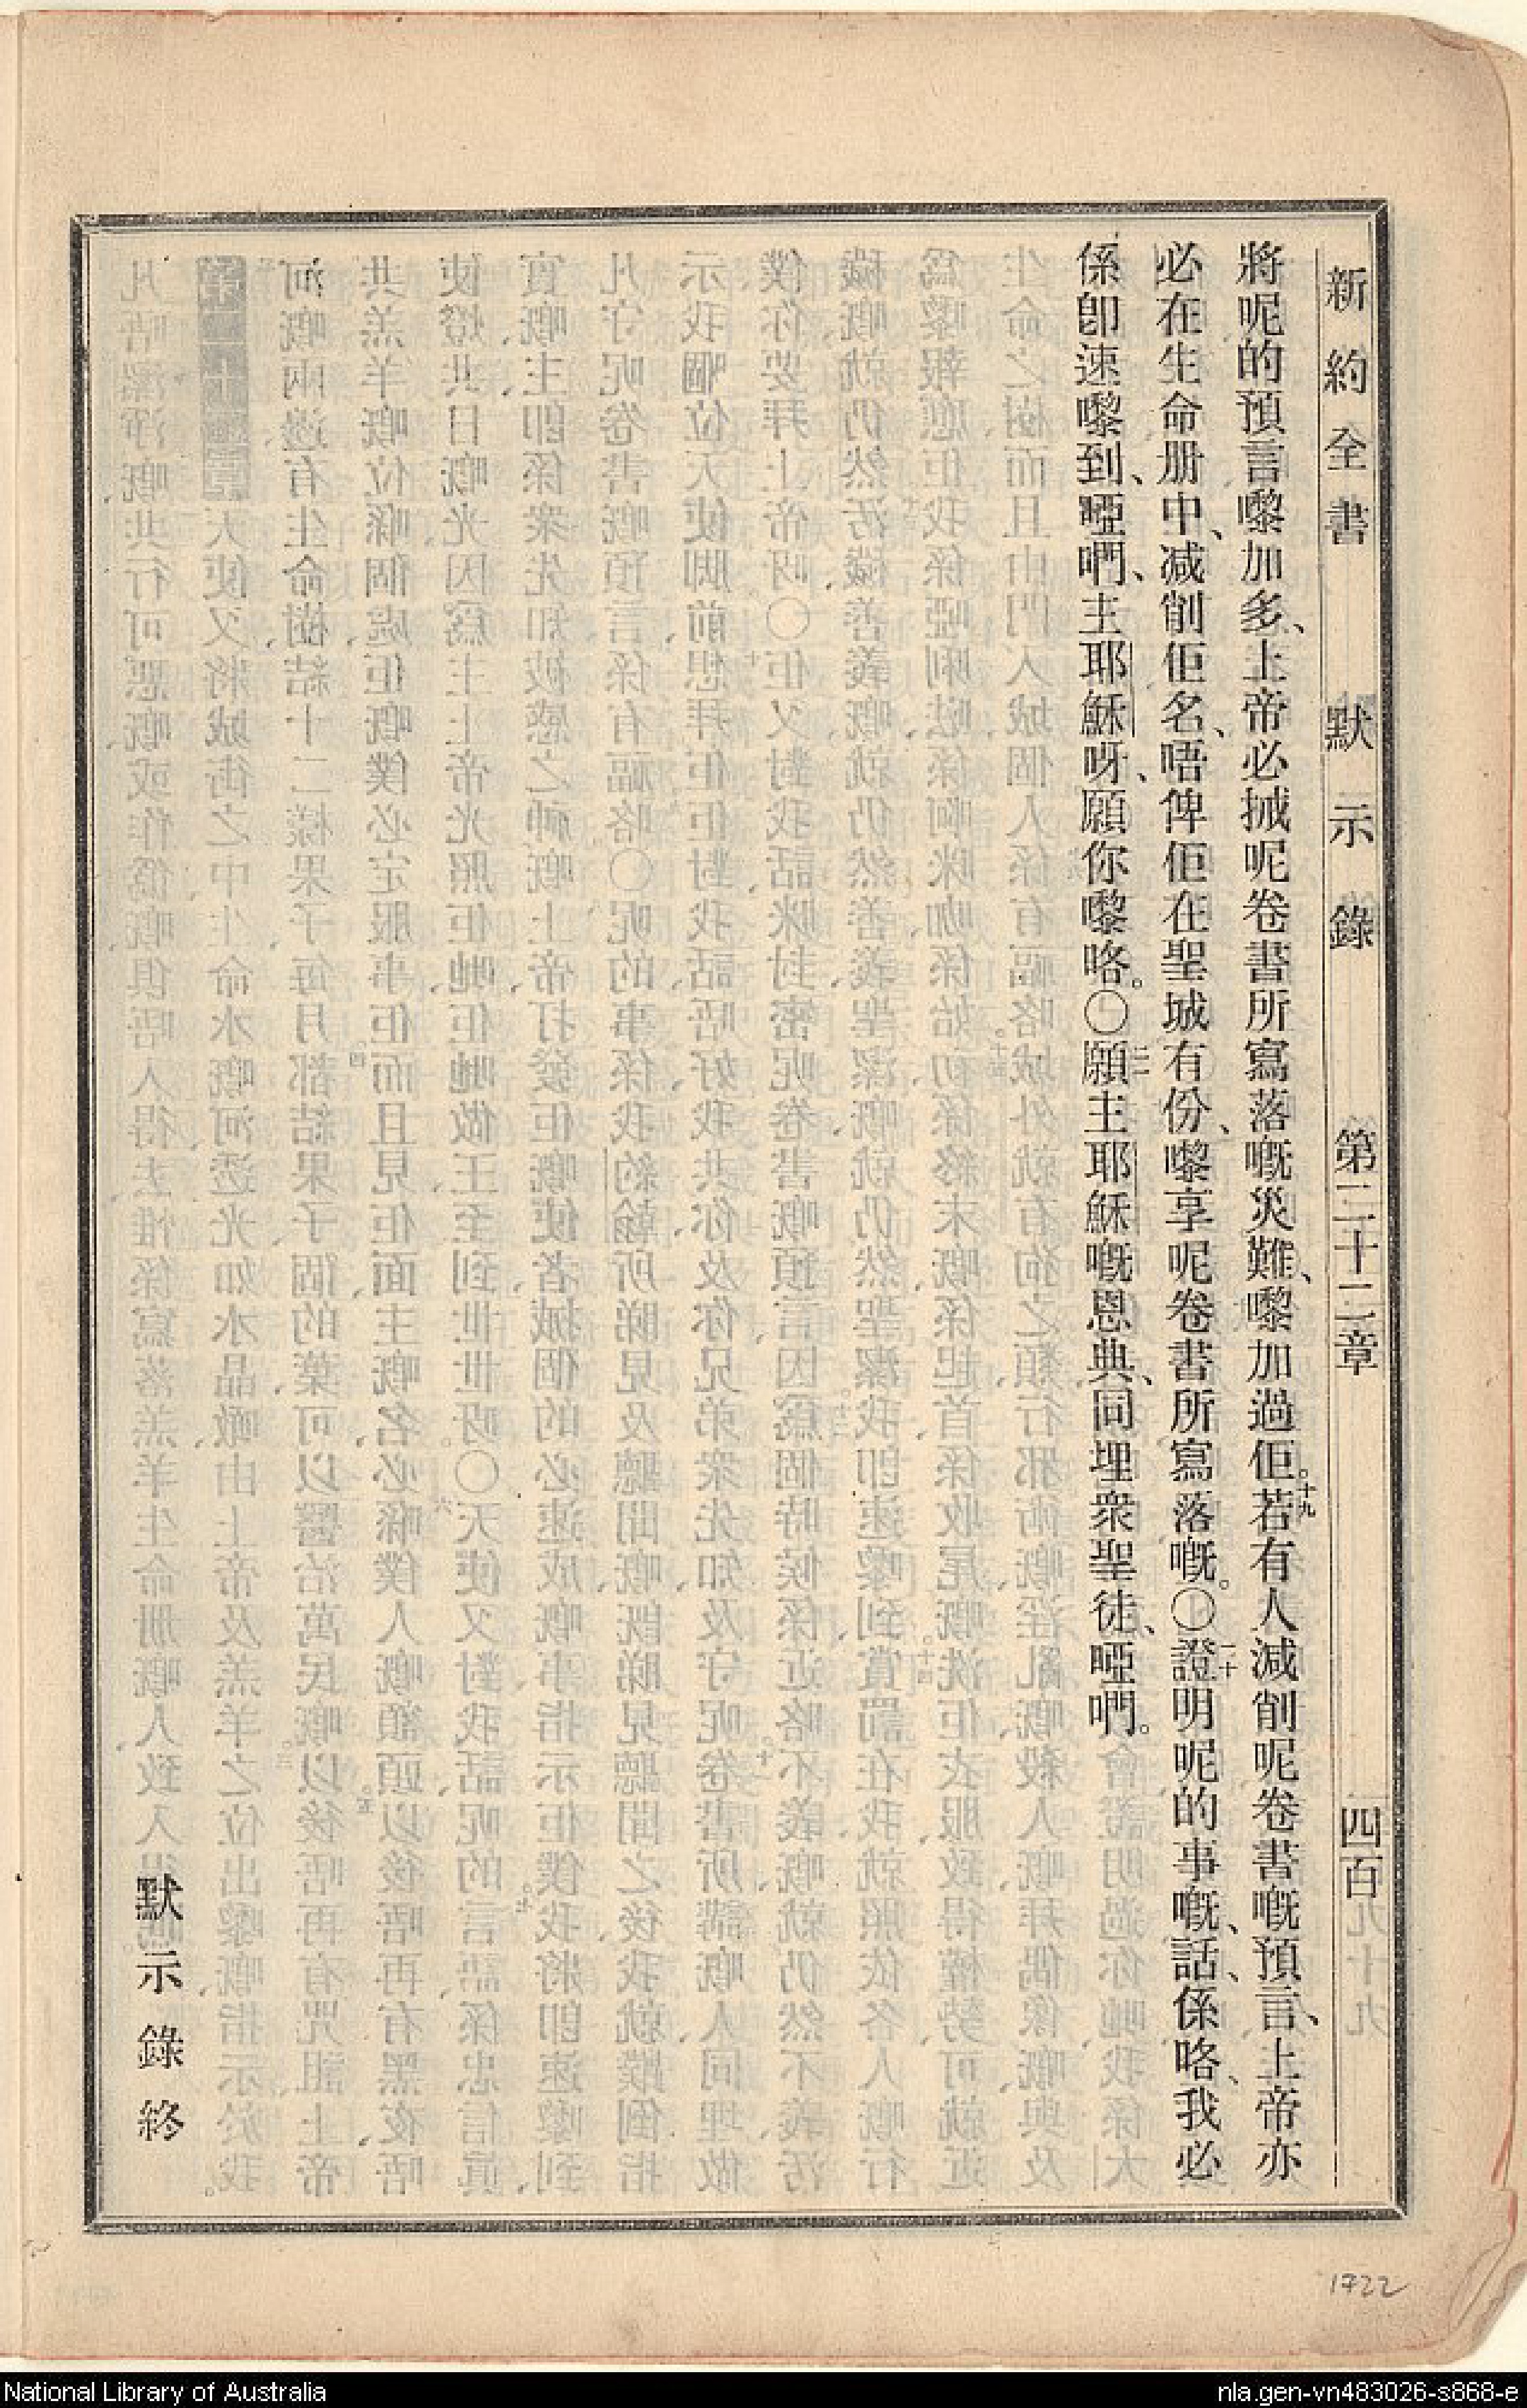 新約全書 默示錄 第二十二章 四百
將呢的預言嚟加多、上帝必搣呢卷書所寫落嘅災難、嚟加過佢。十九若有人減削呢卷書嘅預言、上帝亦
必在生命册中、減削佢名、唔俾佢在聖城有份、嚟享呢卷書所寫落嘅。〇二十證明呢的事嘅、話、係咯、我必
係卽速嚟到、啞們、主耶穌呀、願你嚟咯。〇二一願主耶穌嘅恩典、同埋衆聖徒、啞們。
默示錄終
1722
National Library of Australia
nla.gen-vn483026-s868-e